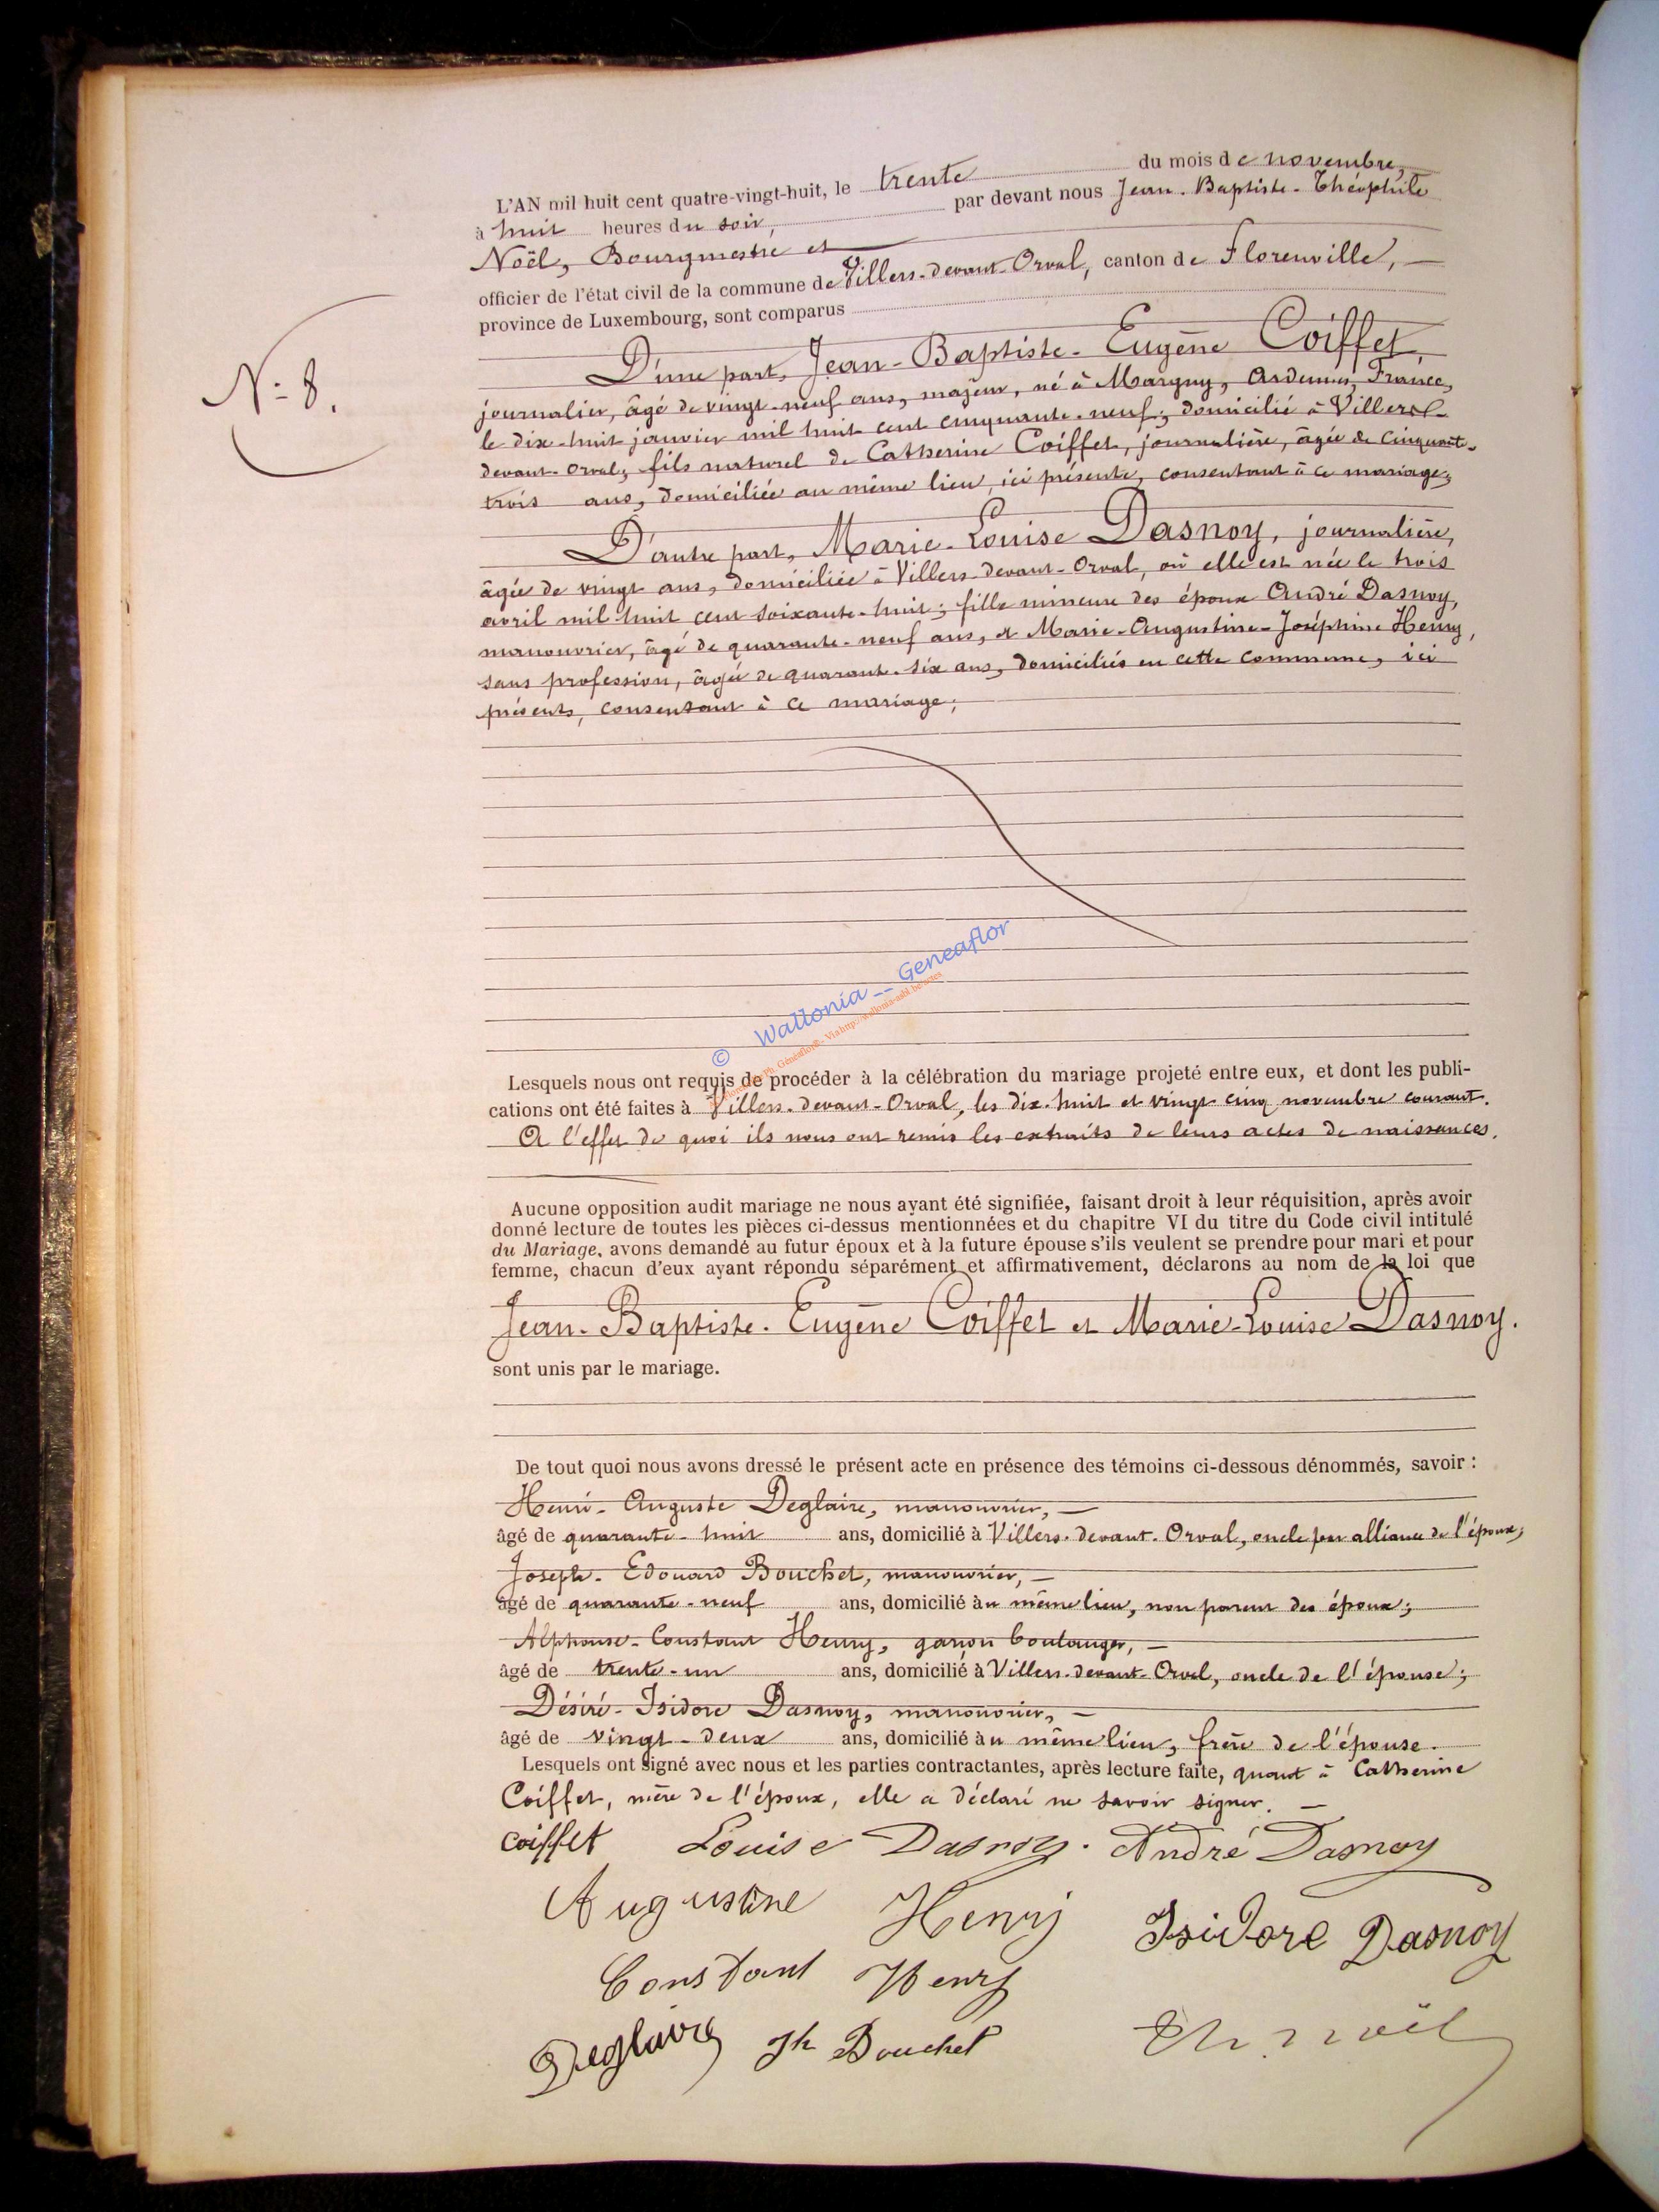 L'AN mil huit cent quatre-vingt-huit, le trente du mois de novembre,
à huit heures du soir, par devant nous Jean-Baptiste-Théophile
Noël, Bourgmestre et
officier de l'état civil de la commune de Villers-devant-Orval, canton de Florenville,
province de Luxembourg, sont comparus
N° 8.
D'une part, Jean-Baptiste-Eugène Coiffet,
journalier, âgé de vingt-neuf ans, majeur, né à Margny, Ardennes, France,
le dix-huit janvier mil huit cent cinquante-neuf; domicilié à Villers-
devant-Orval, fils naturel de Catherine Coiffet, journalière, âgée de cinquante-
trois ans, domiciliée au même lieu, ici présente, consentant à ce mariage;
D'autre part, Marie-Louise Dasnoy, journalière,
âgée de vingt ans, domiciliée à Villers-devant-Orval, où elle est née le trois
avril mil huit cent soixante-huit; fille mineure des époux André Dasnoy,
manouvrier, âgé de quarante-neuf ans, et Marie-Augustine-Joséphine Henry,
sans profession, âgée de quarante-six ans, domiciliés en cette commune, ici
présents, consentant à ce mariage;
© Wallonia -- Geneaflor
Lesquels nous ont requis de procéder à la célébration du mariage projeté entre eux, et dont les publi-
cations ont été faites à Villers-devant-Orval, les dix-huit et vingt-cinq novembre courant.
A l'effet de quoi ils nous ont remis les extraits de leurs actes de naissances.
Aucune opposition audit mariage ne nous ayant été signifiée, faisant droit à leur réquisition, après avoir
donné lecture de toutes les pièces ci-dessus mentionnées et du chapitre VI du titre du Code civil intitulé
du Mariage, avons demandé au futur époux et à la future épouse s'ils veulent se prendre pour mari et pour
femme, chacun d'eux ayant répondu séparément et affirmativement, déclarons au nom de la loi que
Jean-Baptiste-Eugène Coiffet et Marie-Louise Dasnoy.
sont unis par le mariage.
De tout quoi nous avons dressé le présent acte en présence des témoins ci-dessous dénommés, savoir :
Henri-Auguste Deglaire, manouvrier,
âgé de quarante-huit ans, domicilié à Villers-devant-Orval, oncle par alliance de l'époux;
Joseph-Edouard Bouchet, manouvrier,
âgé de quarante-neuf ans, domicilié au même lieu, non parent des époux;
Alphonse-Constant Henry, garçon boulanger,
âgé de trente-un ans, domicilié à Villers-devant-Orval, oncle de l'épouse;
Désiré-Isidore Dasnoy, manouvrier,
âgé de vingt-deux ans, domicilié au même lieu, frère de l'épouse.
Lesquels ont signé avec nous et les parties contractantes, après lecture faite, quant à Catherine
Coiffet, mère de l'époux, elle a déclaré ne savoir signer.
Coiffet Louise Dasnoy. André Dasnoy
Augustine Henry Isidore Dasnoy
Constant Henry
Deglaire Jh Bouchet Th. Noël